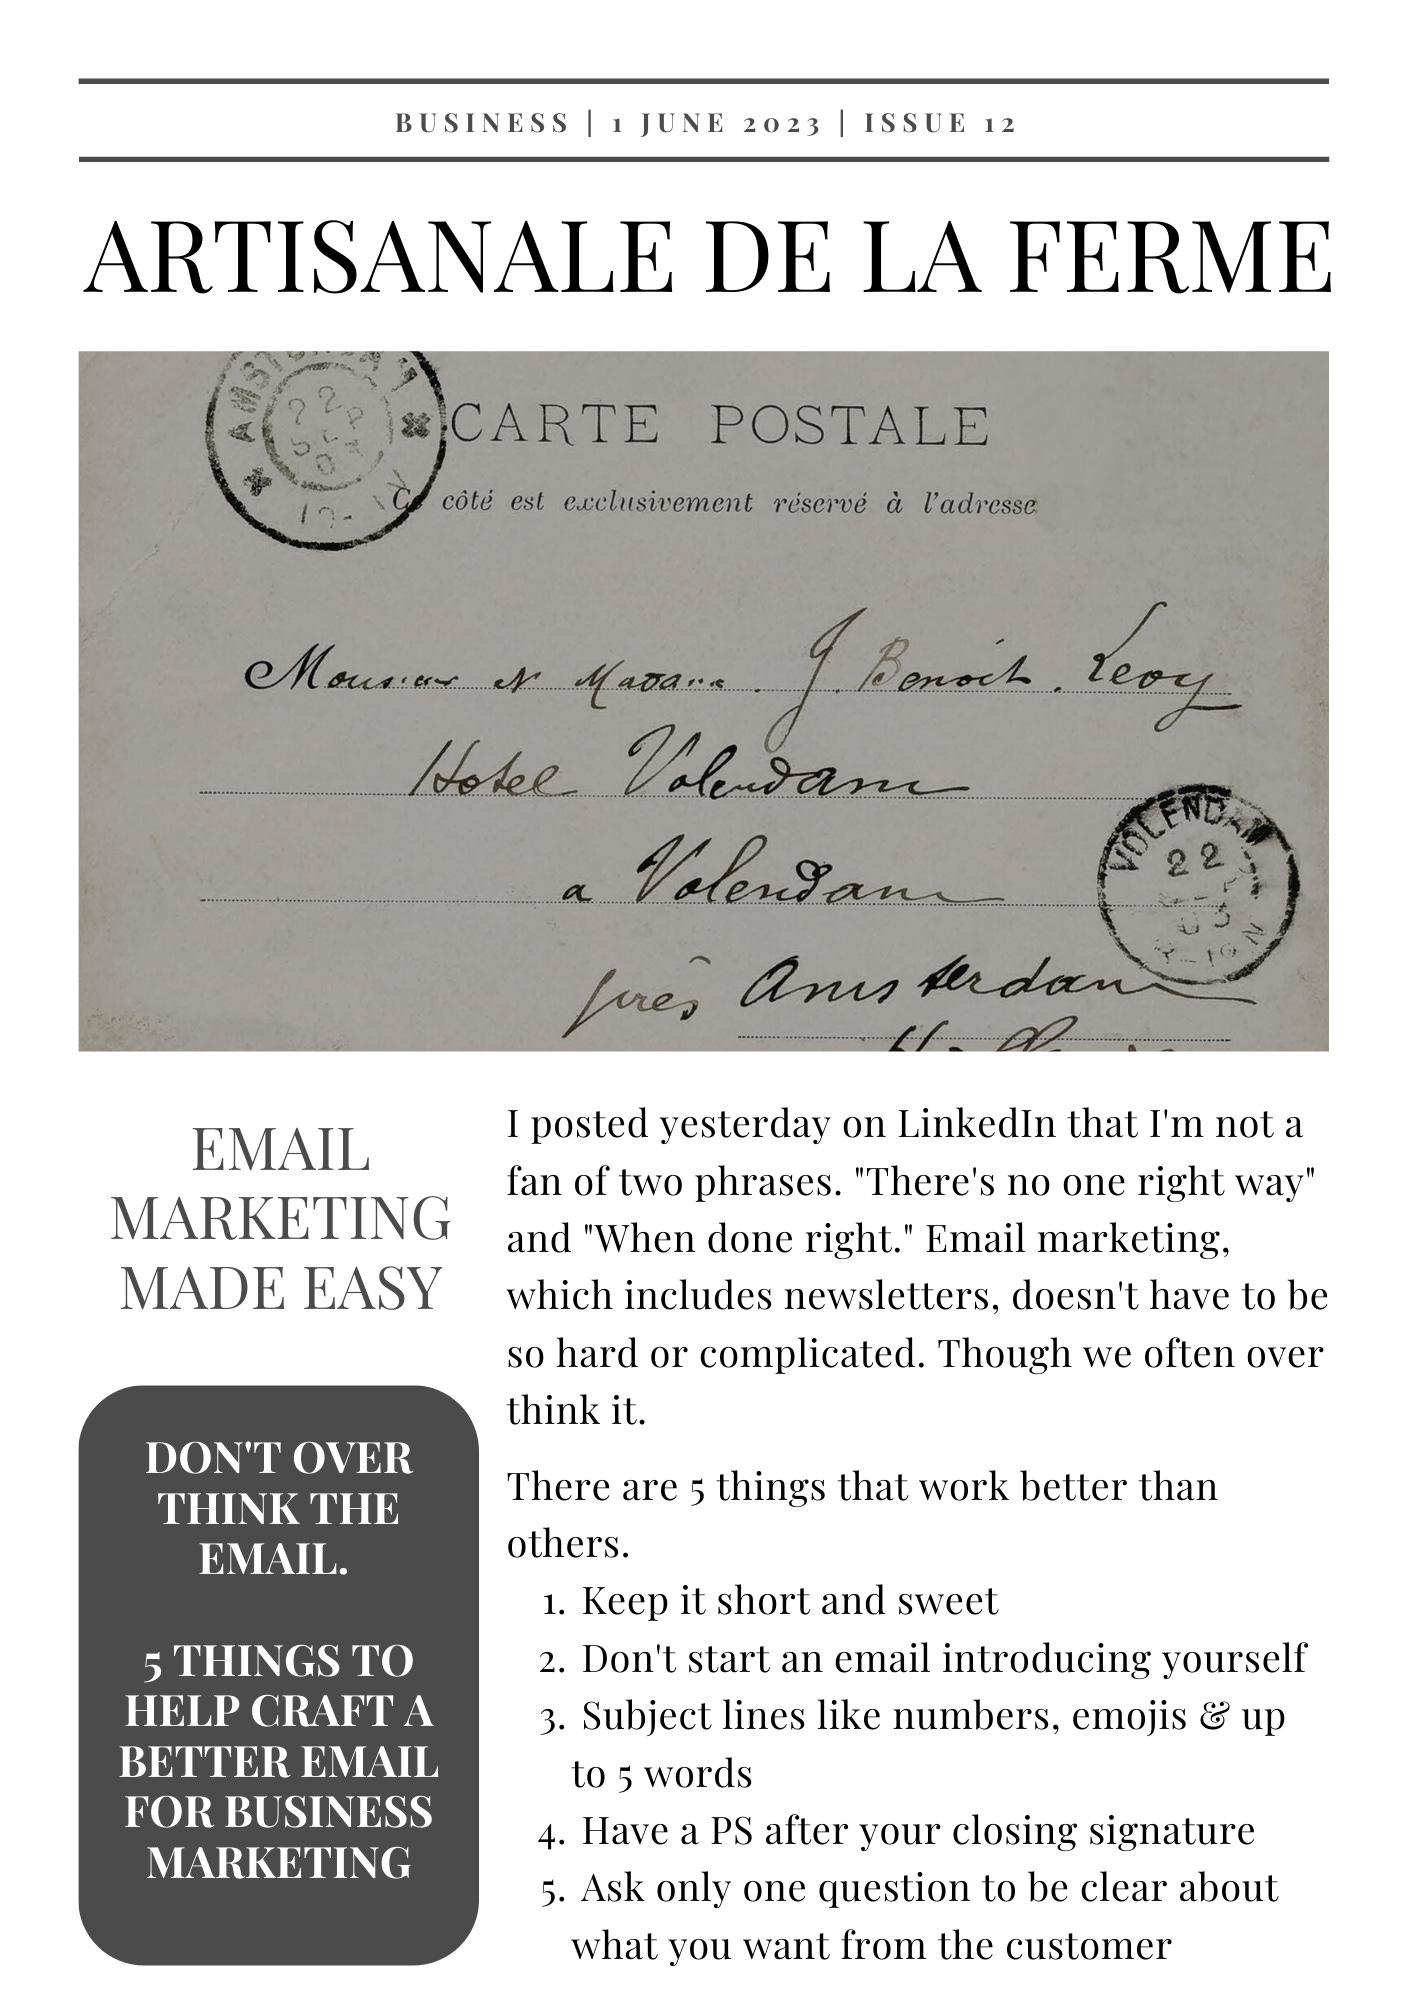 BUSINESS | 1 JUNE 2023 | ISSUE 12
ARTISANALE DE LA FERME
CARTE POSTALE
Ce côté est exclusivement réservé à l'adresse
J. Benoit. Levy
Hotel Volendam
VOLENDAM
22
a Volendam
près Amsterdam
EMAIL
MARKETING
MADE EASY
DON'T OVER
THINK THE
EMAIL.
5 THINGS TO
HELP CRAFT A
BETTER EMAIL
FOR BUSINESS
MARKETING
I posted yesterday on LinkedIn that I'm not a
fan of two phrases. "There's no one right way"
and "When done right." Email marketing,
which includes newsletters, doesn't have to be
so hard or complicated. Though we often over
think it.
There are 5 things that work better than
others.
1. Keep it short and sweet
2. Don't start an email introducing yourself
3. Subject lines like numbers, emojis & up
to 5 words
4. Have a PS after your closing signature
5. Ask only one question to be clear about
what you want from the customer